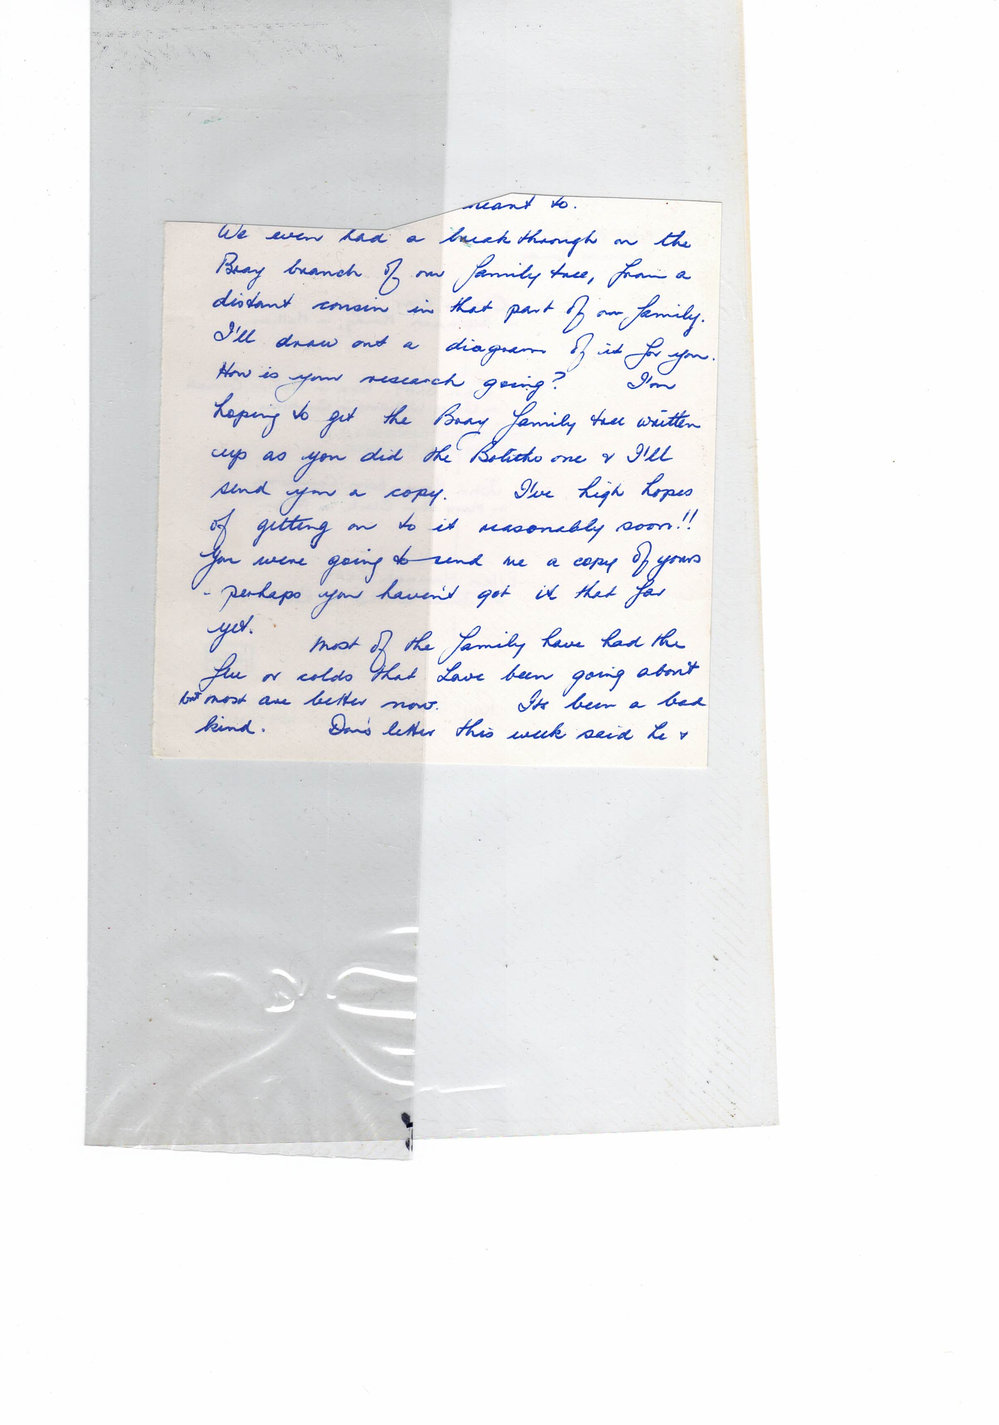 meant to.
We even had a breakthrough on the
Bray branch of our family tree, from a
distant cousin in that part of our family.
I'll draw out a diagram of it for you.
How is your research going? I'm
hoping to get the Bray family tree written
up as you did the Bolitho one & I'll
send you a copy. I've high hopes
of getting on to it reasonably soon!!
You were going to send me a copy of yours
- perhaps you haven't got it that far
yet. Most of the family have had the
flu or colds that have been going about
but most are better now. Its been a bad
kind. Don's letter this week said he &